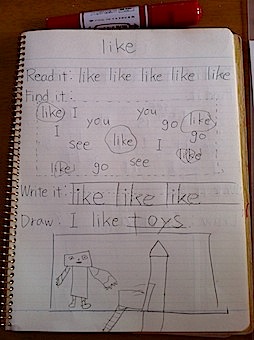 like
Read it: like like like like like
Find it:
like I you you like
I like go go
see see like
like go
Write it: like like like
Draw: I like toys.